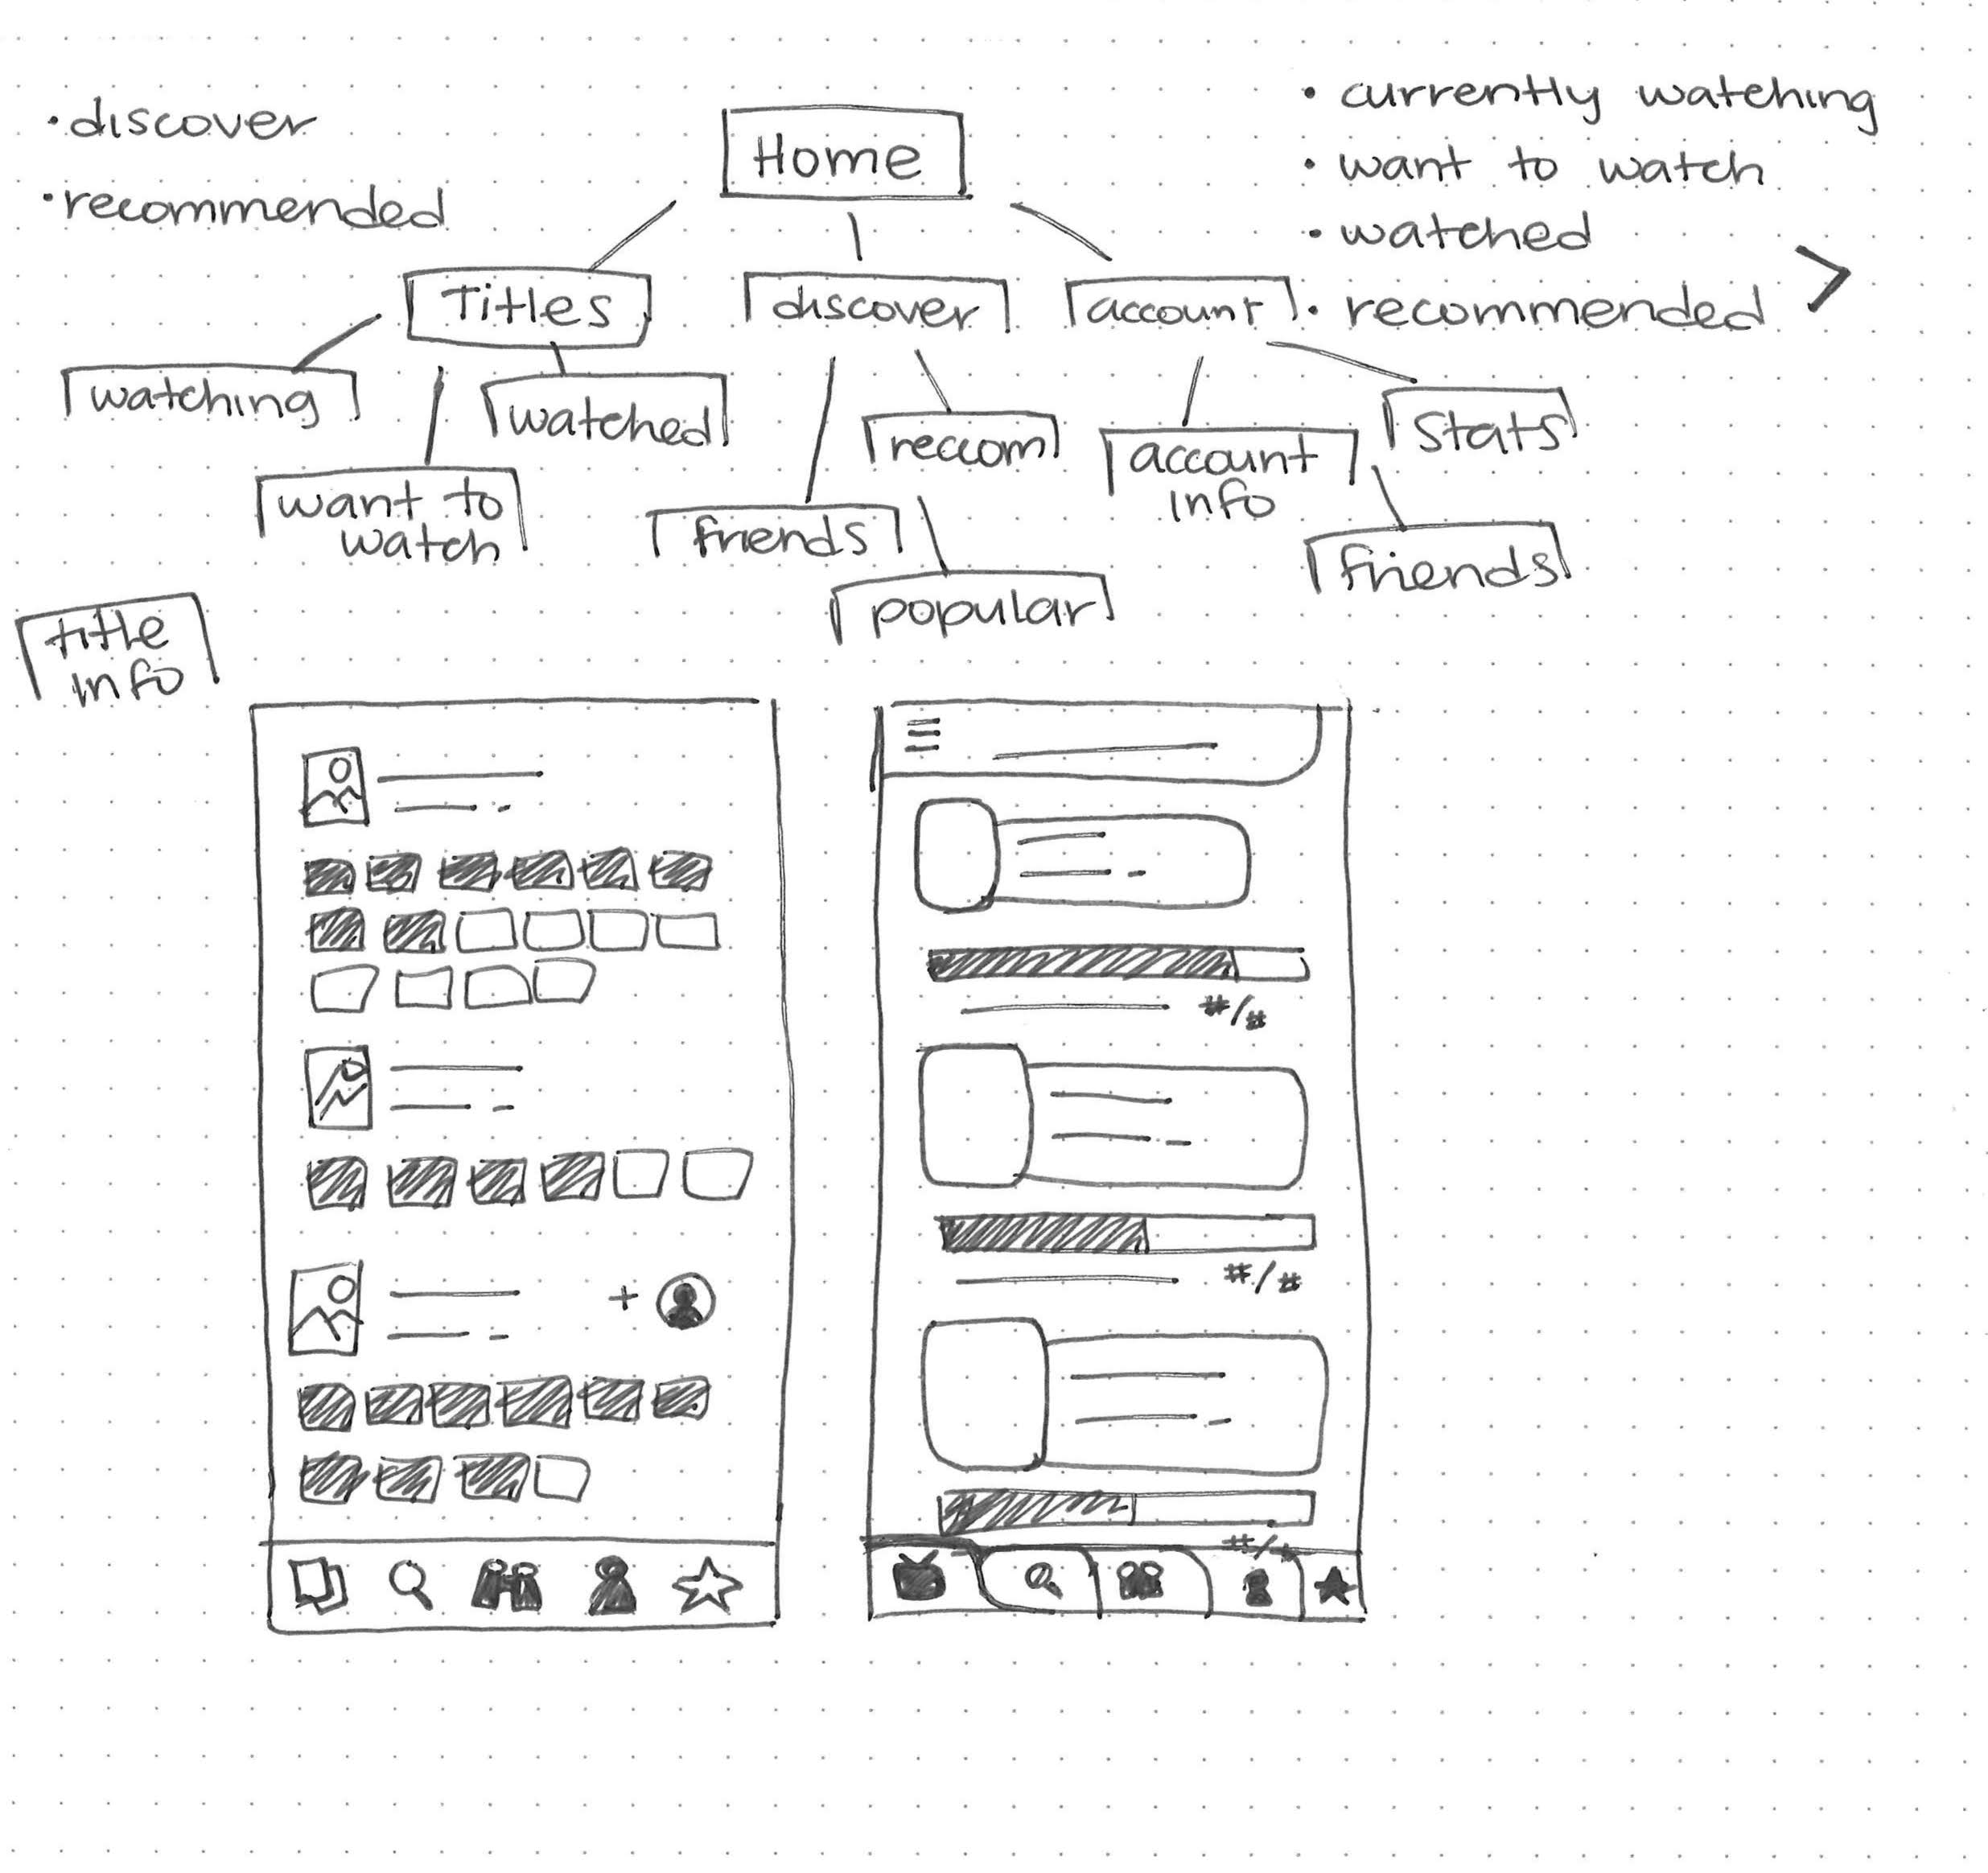 • discover
• recommended
Home
• currently watching
• want to watch
• watched
• recommended
Titles
discover
account
watching
want to
watch
watched
friends
reccom
popular
account
info
stats
friends
title
info
#/#
#/#
#/#